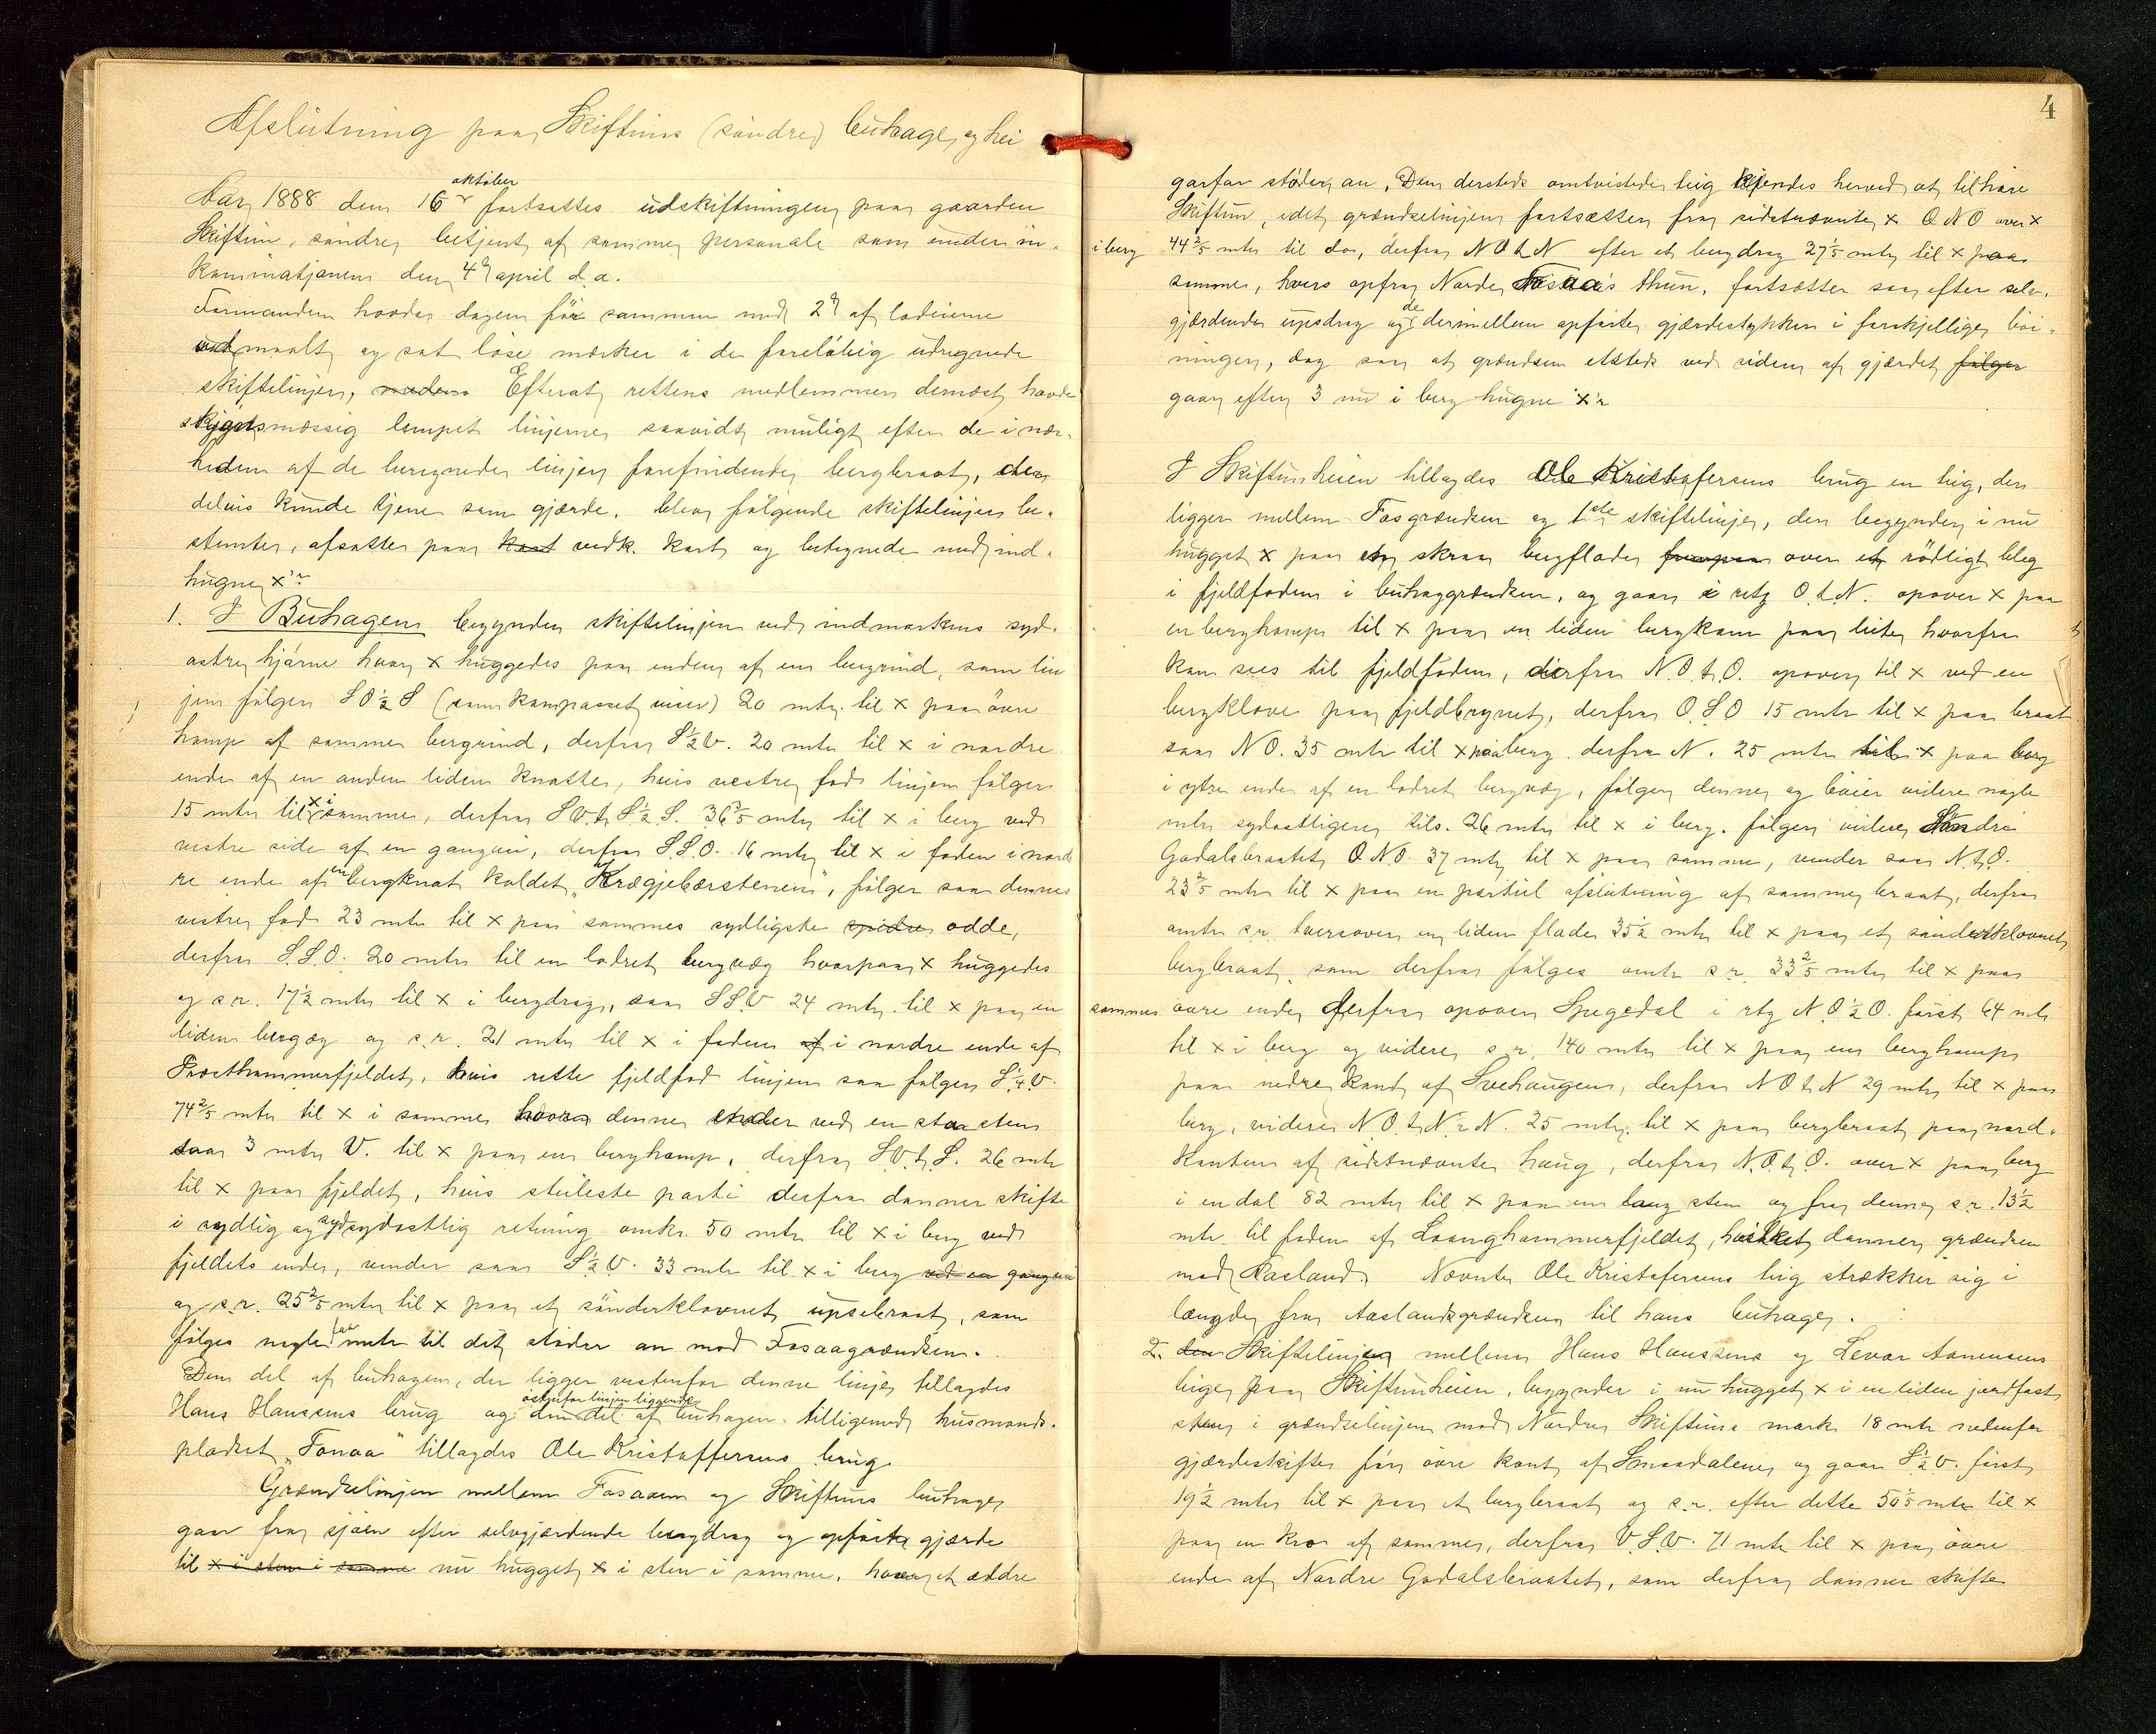 Afslutning paa Skiftuns (søndre) buhage og hei
Aar 1888 den 16de oktober fortsattes udskiftningen paa gaarden
Skiftun, søndre, betjent af samme personale som under in-
kaminatjonen den 4de april d.a.
Formanden havde dagen før sammen med 2de af lodeierne
maalt og sat løse mærker i de foreløbig udregnede
skiftelinjer, Efterat rettens medlemmer dernæst havde
skjønsmæssig lempet linjerne saavidt muligt efter de i nær-
heden af de beregnede linjer forefindende bergbraat, der
delvis kunde tjene som gjærde, blev følgende skiftelinjer be-
stemte, afsatte paa vedk. kart og betegnede med ind-
hugne x'r
1. I Buhagen begynder skiftelinjen ved indmarkens syd-
østre hjørne hvor x huggedes paa enden af en bergrind, som lin
jen følger SO½S (som kompasset viser) 20 mtr. til x paa øvre
hamp af samme bergrind, derfra S½V. 20 mtr til x i nordre
ende af en anden liden knatte, hvis vestre fod linjen følger
15 mtr til x i samme, derfra SV.t.S½S. 36⅗ mtr til x i berg ved
vestre side af en gangvei, derfra S.S.O. 16 mtr til x i foden i nord
re ende af en bergknat kaldet "Krægjebærstenen", følger saa dennes
vestre fod 23 mtr til x paa sammes sydligste odde,
derfra S.S.O. 20 mtr til en lodret bergvæg hvorpaa x huggedes
og s.r. 17½ mtr til x i bergdrag, saa SSV 24 mtr. til x paa en
liden bergæg og s.r. 21 mtr til x i foden i nordre ende af
Præsthammerfjeldet, hvis rette fjeldfod linjen saa følger S¼V.
74⅖ mtr til x i samme hvor denne ender ved en stor sten
saa 3 mtr V. til x paa en berghamp, derfra SV.t.S. 26 mtr
til x paa fjeldet, hvis steileste parti derfra danner skifte
i sydlig og sydsydøstlig retning omkr. 50 mtr til x i berg ved
fjeldets ende, vender saa S½V. 33 mtr til x i berg ved en gangvei
og s.r. 25⅖ mtr til x paa et sønderkløvnet upsebraat, som
følges nogle faa mtr til det støder an mod Fosaagrændsen.
Den del af buhagen, der ligger vestenfor denne linje tillagdes
Hans Hanssens brug og den østenfor linjen liggende del af buhagen tilligemed husmands-
pladset "Fonaa" tillagdes Ole Kristoffersens brug.
Grændselinjen mellem Fosaaen og Skiftuns buhage
gaar fra sjøen efter selvgjærdende bergdrag og opførte gjærde
til x i sten i samme nu hugget x i sten i samme, hvor et ældre
4
garfar støder an. Den dersteds omtvistede teig kjendes herved at tilhøre
Skiftun, idet grændselinjen fortsætter fra sidstnævnte x O N O over x
i berg 44⅖ mtr til do, derfra N O t N efter et bergdrag 27⅕ mtr til x paa
samme, hvors opfra Nordre Fosaa's thun, fortsætter saa efter selv-
gjærdende upsdrag og de derimellem opførte gjærdestykker i forskjellige bøi-
ninger, dog saa at grændsen etsteds ved siden af gjærdet følger
gaar efter 3 nu i berg hugne x'r
I Skiftunheien tillagdes Ole Kristofersens brug en teig, der
ligger mellem Fosgrændsen og 1ste skiftelinje, der begynder i nu
hugget x paa en skraa bergflade over et rødligt bleg
i fjeldfoden i buhaggrændsen, og gaar i retg O.t.N. opover x paa
en berghamp til x paa en liden bergkam paa lute hvorfra
kan sees til fjeldfoden, derfra N.O.t.O. opover til x ved en
bergkløve paa fjeldbrynet, derfra O.S.O 15 mtr til x paa braat
saa NO. 35 mtr til x paa berg derfra N. 25 mtr til x paa berg
i ytre ende af en lodret bergvæg, følger denne og bøier videre nogle
mtr sydøstligere tils. 26 mtr til x i berg. følger videre Søndre
Godalsbraatet O.N.O. 37 mtr til x paa samme, vender saa N.t.O.
23⅖ mtr til x paa en partiel afslutning af samme braat, derfra
omtr s.r. tversover en liden flade 35½ mtr til x paa et sønderkløvnet
bergbraat, som derfra følges omtr s.r. 33⅖ mtr til x paa
sammes øvre ende, derfra opover Spegedal i rtg N.O½O. først 64 mtr
til x i berg og videre s.r. 140 mtr til x paa en berghamp
paa nedre kant af Svehaugen, derfra N O t N 29 mtr til x paa
berg, videre N.O.t.N½N. 25 mtr. til x paa bergbraat paa nord-
kanten af sidstnævnte haug, derfra N.O.t.O. over x paa berg
i en dal 82 mtr til x paa en lang sten og fra denne s.r. 13½
mtr. til foden af Loanghammerfjeldet, hvilket danner grændsen
mod Aasland. Nævnte Ole Kristofersens teig strækker sig i
længde fra Aaslandsgrændsen til hans buhage.
2. Skiftelinjen mellem Hans Hanssens og Levor Aanensens
teige paa Skiftunheien, begynder i nu hugget x i en liden jordfast
sten i grændselinjen mod Nordre Skiftuns mark 18 mtr nedenfor
gjærdeskifte før øvre kant af Smaadalene og gaar S½V. først
19½ mtr til x paa et bergbraat og s.r. efter dette 50⅕ mtr til x
paa en kro af samme, derfra V.S.V. 71 mtr til x paa øvre
ende af Nordre Godalsbraatet, som derfra danner skifte